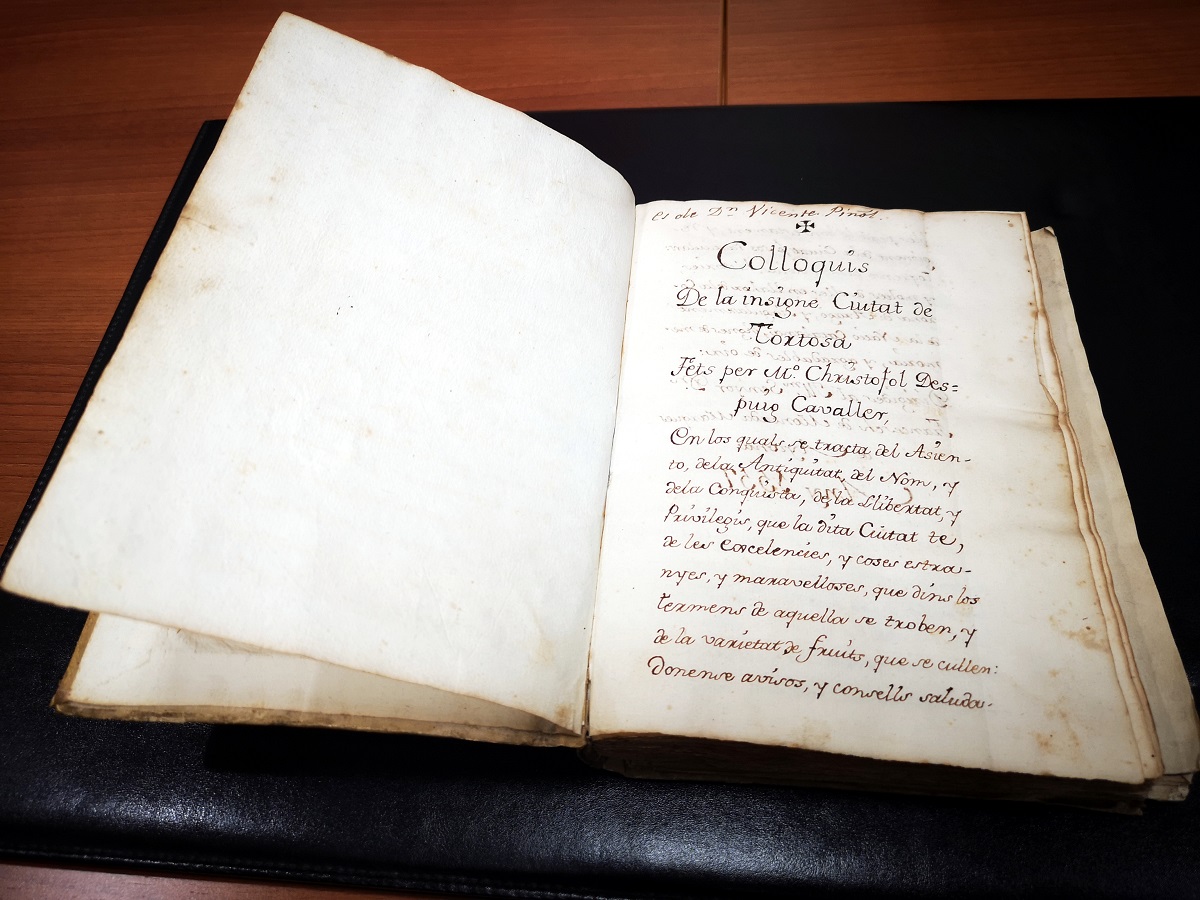 es de Dn Vicente Pinol.
Colloquis
De la insigne Ciutat de
Tortosa
Fets per Mo. Christofol Des=
puig Cavaller,
En los quals se tracta del Asien-
to, dela Antiquitat, del Nom, y
dela Conquista, de la Llibertat, y
Privilegis, que la dita Ciutat te,
de les Excelencies, y coses estra-
nyes, y maravelloses, que dins los
termens de aquella se troben, y
de la varietat de fruits, que se cullen:
donense avisos, y consells saluda-